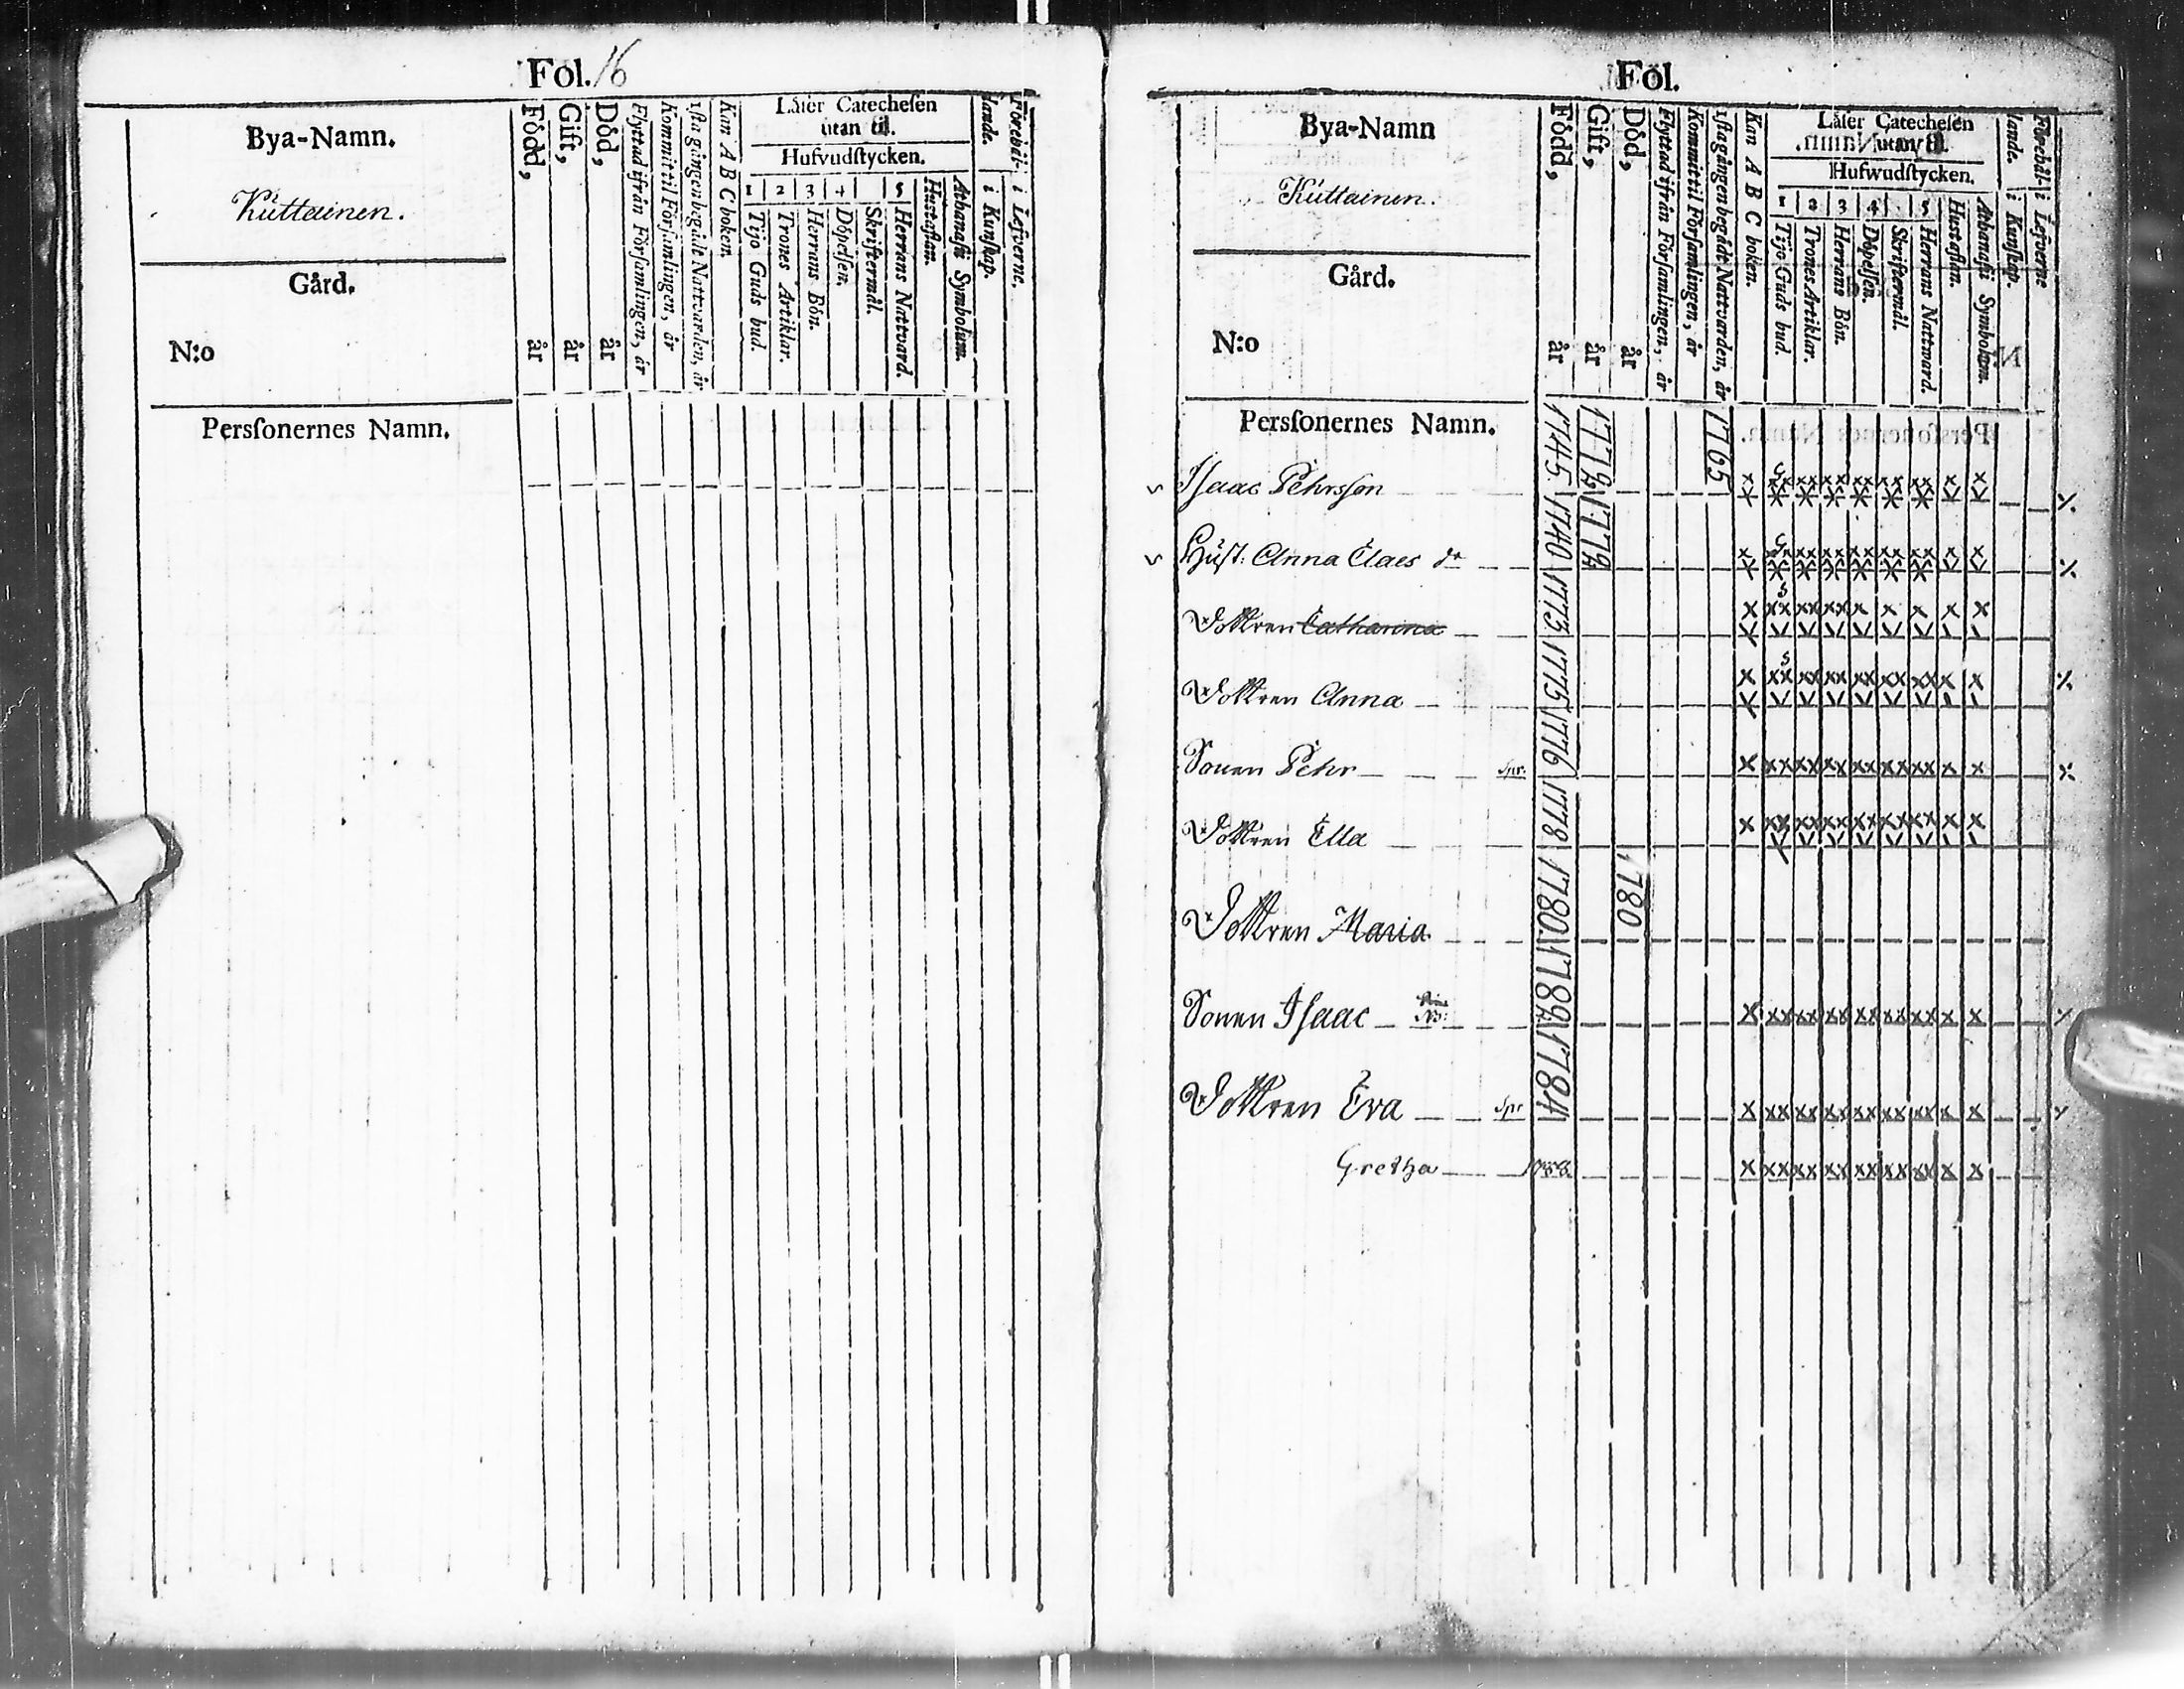 Fol. 16
Bya-Namn.
Kúttainen.
Gård.
N:o
Persſonernes Namn.
Född, år
Gift, år
Död, år
Flyttad ifrån Förſamlingen, år
Kommit til Förſamlingen, år
1ſta gången begådt Nattvarden, år
Kan A B C boken.
Läſer Catecheſen
utan til.
Hufvudſtycken.
1 2 3 4 5
Tijo Guds bud.
Trones Artiklar.
Herrans Bön.
Döpelſen.
Skriftermål.
Herrans Nattvard.
Huſtaflan.
Athanaſii Symbolum.
Förehål-
lande.
i Kunſkap.
i Lefverne.
Föl.
Bya-Namn
Kúttainen.
Gård.
N:o
Persſonernes Namn.
Född, år
Gift, år
Död, år
Flyttad ifrån Förſamlingen, år
Kommit til Förſamlingen, år
1ſta gången begådt Nattvarden, år
Kan A B C boken.
Läſer Catecheſen
utan til.
Hufwudſtycken.
1 2 3 4 5
Tijo Guds bud.
Trones Artiklar.
Herrans Bön.
Döpelſen.
Skriftermål.
Herrans Nattward.
Huſtaflan.
Athanaſii Symbolum.
Förehål-
lande.
i Kunſkap.
i Lefverne
Iſaac Pehrsſon 1745. 1772 1765
Húſt: Anna Claes dr 1740 1772
Dottren Catharina 1773
Dottren Anna 1775
Sonen Pehr Spr. 1776
Dottren Ella 1778
Dottren Maria 1780 1780
Sonen Iſaac 1782
Dottren Eva Spr 1784
Gretha